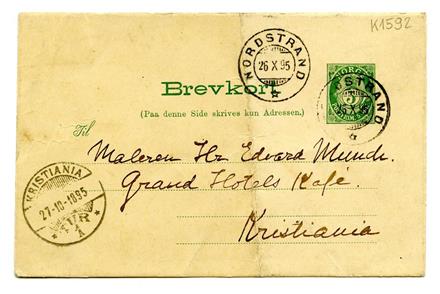 K1592
NORDSTRAND
26 X 95
Brevkort
(Paa denne Side skrives kun Adressen.)
NORGE
5
STRAND
26 X 95
Til
Maleren Hr Edvard Munch.
Grand Hotels Kafé.
Kristiania
KRISTIANIA
27-10-1895
TUR
A